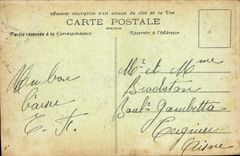 Aucune inscription n'est admise du côté de la Vue
CARTE POSTALE
Partie réservée à la Correspondance
Réservée à l'Adresse
Un bon
baiser
Mr et Mme
Boulv. Gambetta
Tergnier
Aisne